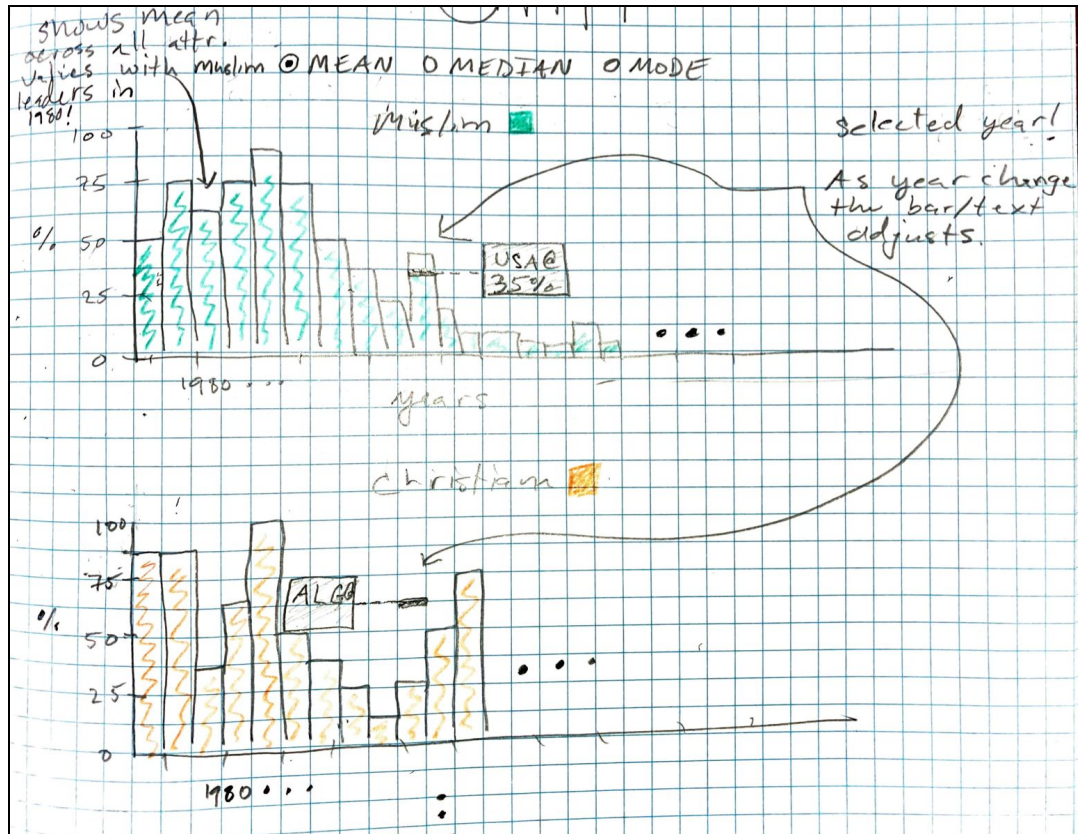 shows mean
across all attr.
values with muslim
leaders in
1980!
MEAN MEDIAN MODE
Muslim
Selected year!
As year change
the bar/text
adjusts.
100
75
%
50
25
0
USA@
35%
1980 . . .
years
Christian
100
75
%
50
25
0
ALG@
1980 . . .